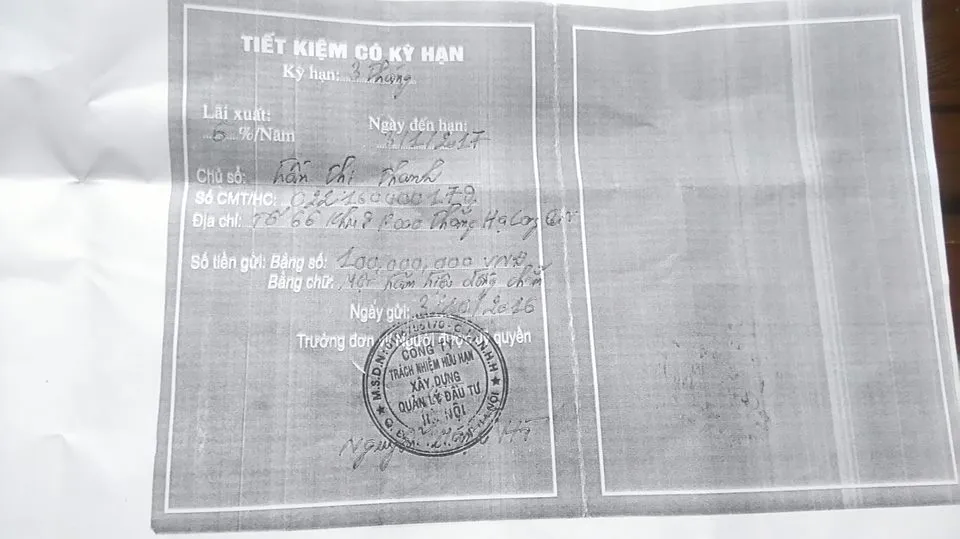 TIẾT KIỆM CÓ KỲ HẠN
Kỳ hạn: 3 tháng
Lãi xuất:
%/Năm
Ngày đến hạn:
/1/2017
Chủ sổ: Trần Thị Thanh
Số CMT/HC: 022160000
Địa chỉ: Tổ 66 Khu 8 Thắng Hạ Long
Số tiền gửi: Bằng số: 100,000,000 VNĐ
Bằng chữ: Một trăm triệu đồng chẵn
Ngầy gửi: 3/10/2016
Trưởng đơn Người được ủy quyền
M.S.D.N: C.T.T.N.H.H
CÔNG TY
TRÁCH NHIỆM HỮU HẠN
XÂY DỰNG
QUẢN LÝ ĐẦU TƯ
HÀ NỘI
HÀ NỘI